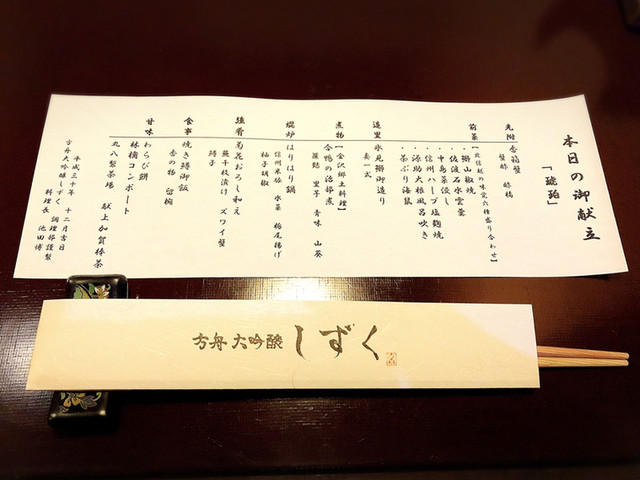 本日の御献立
「琥珀」
先附 香箱蟹
蟹酢 酢橘
前菜 【北信越の味覚六種盛り合わせ】
・鰤山椒焼
・佐渡石水雲
・中島菜浸し
・信州ハーブ塩麹焼
・源助大根風呂吹き
・茶ぶり海鼠
造里 氷見鰤御造り
妻一式
煮物 【金沢郷土料理】
合鴨の治部煮
蓮麩 里子 青味 山葵
焜炉 はりはり鍋
信州米豚 水菜 栃尾揚げ
柚子胡椒
強肴 菊花おろし和え
蕪千枚漬け ズワイ蟹
蒋子
食事 焼き鱈御飯
香の物 留椀
甘味 わらび餅
林檎コンポート
丸八製茶場 献上加賀棒茶
平成三十年 十二月吉日
方舟大吟醸しずく 調理部謹製
料理長 池田博
方舟 大吟醸 しずく